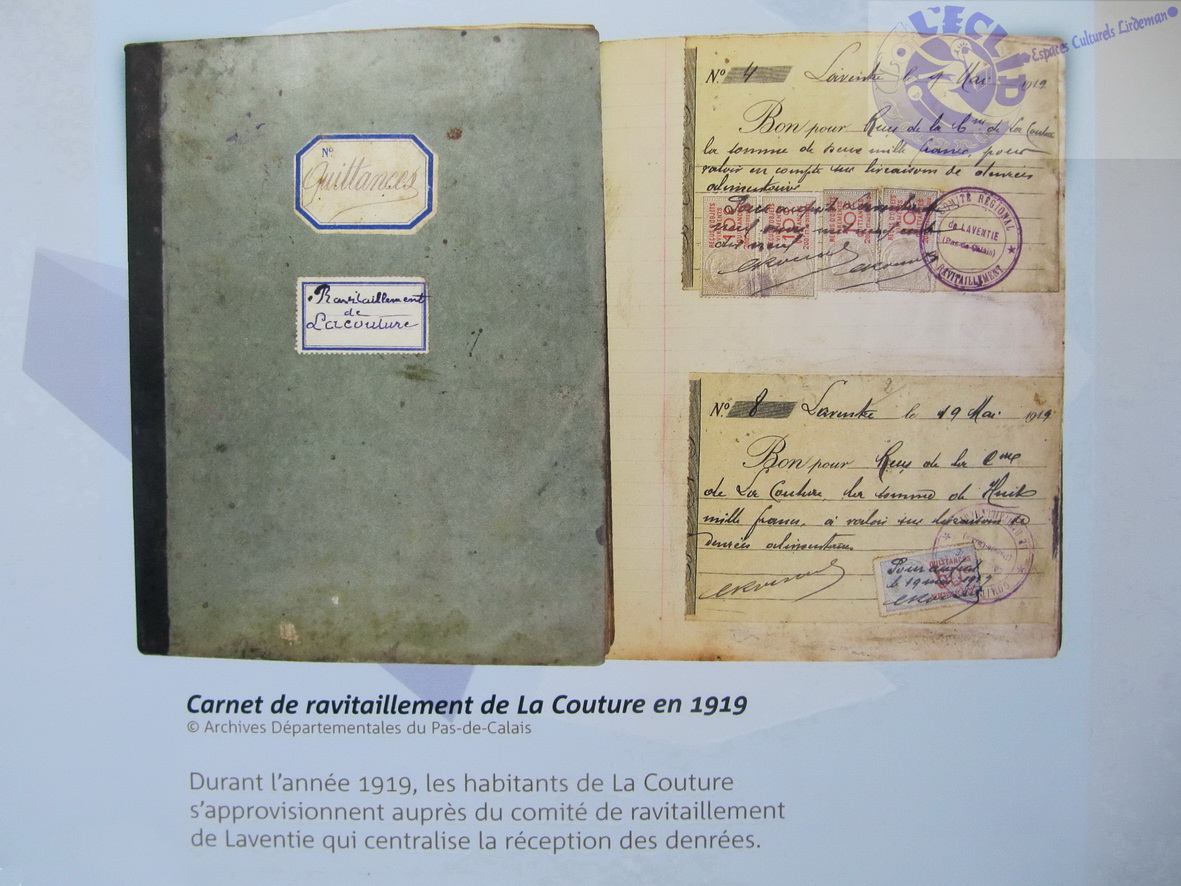 L'ECLID
Espaces Culturels Lirdeman
Nº
Quittances
Ravitaillement
de
Lacouture
Nº 4 Laventie le Mai 1919
Bon pour Reçu de la Cne de La Couture
la somme de mille francs, pour
valoir en compte sur livraison de denrées
alimentaires
COMITÉ RÉGIONAL
de LAVENTIE
(Pas-de-Calais)
RAVITAILLEMENT
Nº 8 Laventie le 19 Mai 1919
Bon pour Reçu de la Cne
de La Couture, la somme de Huit
mille francs, à valoir sur livraison de
denrées alimentaires
QUITTANCES
Pour acquit
le 19 mai 1919
Carnet de ravitaillement de La Couture en 1919
© Archives Départementales du Pas-de-Calais
Durant l'année 1919, les habitants de La Couture
s'approvisionnent auprès du comité de ravitaillement
de Laventie qui centralise la réception des denrées.